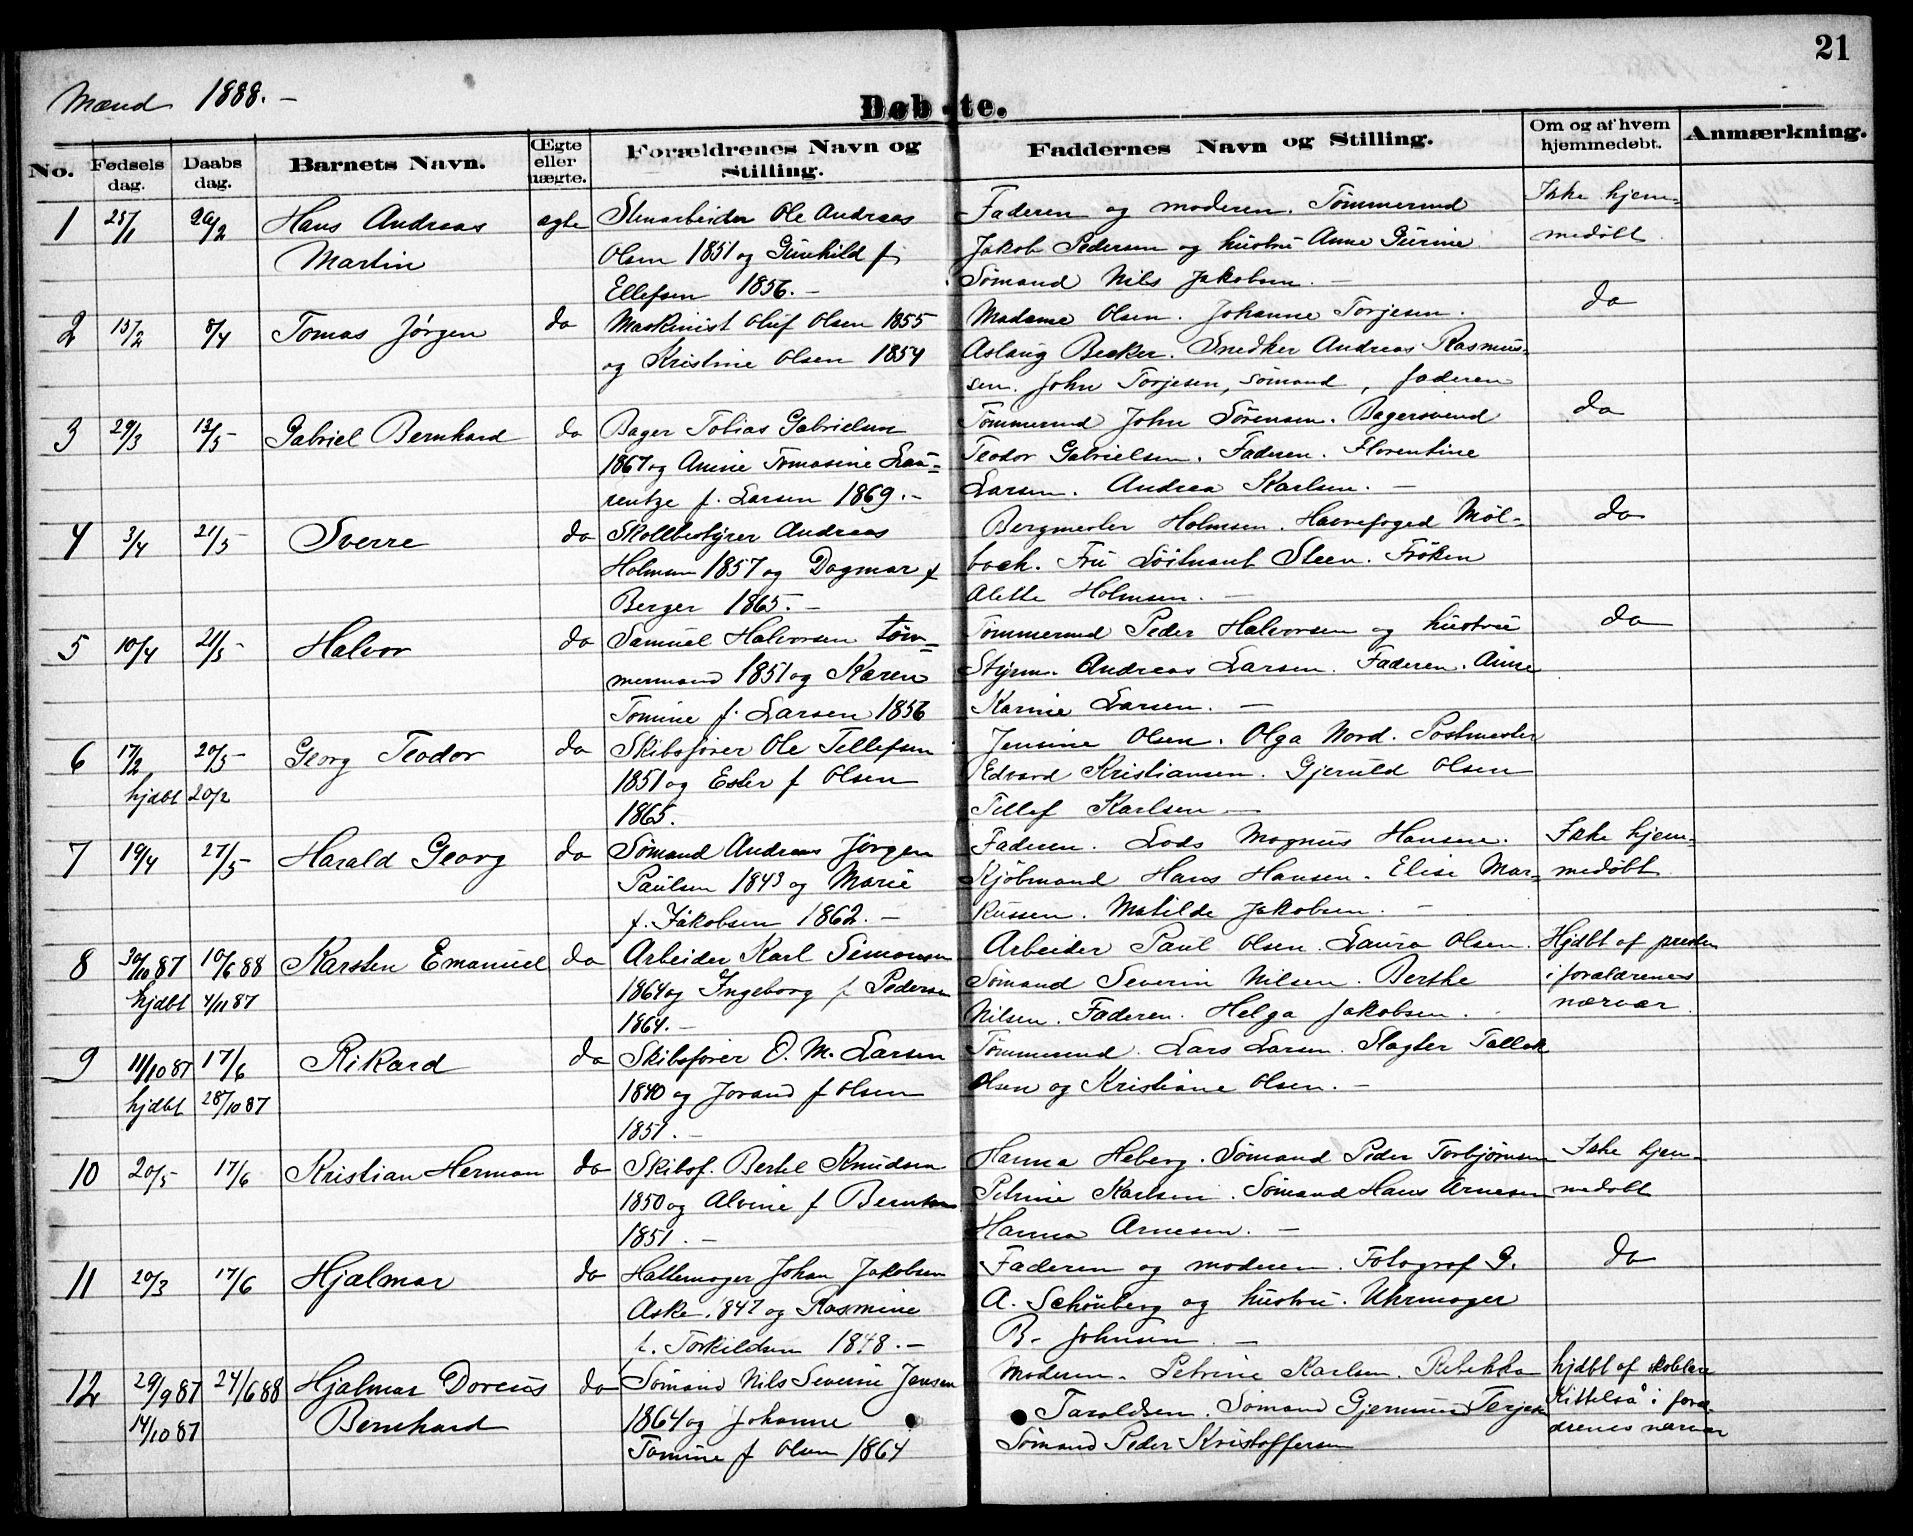 21
Mænd 1888. –
Døbte.
No. Fødsels dag. Daabs dag. Barnets Navn. Ægte eller uægte. Forældrenes Navn og Stilling. Faddernes Navn og Stilling. Om og af hvem hjemmedøbt. Anmærkning.
1 25/1 26/2 Hans Andreas ægte Stenarbeider Ole Andreas Faderen og moderen. Tømmermd Ikke hjem-
Martin Olsen 1851 og Gunhild f. Jakob Pedersen og hustru Anne Gurine medøbt
Ellefsen 1856. – Sømand Nils Jakobsen. –
2 15/2 8/4 Tomas Jørgen do Maskinist Oluf Olsen 1855 Madame Olsen. Johanne Torjesen. do
og Kristine Olsen 1854 Aslaug Becker. Snedker Andreas Rasmus-
sen. John Torjesen, sømand, faderen
3 29/3 13/5 Gabriel Bernhard do Bager Tobias Gabrielsen Tømmermd John Sørensen. Bagersvend do
1867 og Anine Tomasine Lau- Teodor Gabrielsen. Faderen. Florentine
rentze f. Larsen 1869. – Larsen. Andrea Karlsen. –
4 3/4 21/5 Sverre do Skolebestyrer Andreas Bergmester Holmsen. Havnefoged Møl- do
Holmsen 1857 og Dagmar f bach. Fru Løitnant Steen. Frøken
Berger 1865. – Alette Holmsen. –
5 10/4 21/5 Halvor do Samuel Halvorsen tøm- Tømmermd Peder Halvorsen og hustru do
mermand 1851 og Karen Styrm. Andreas Larsen. Faderen. Anne
Tomine f. Larsen 1856 Karine Larsen. –
6 17/2 20/5 Georg Teodor do Skibsfører Ole Tellefsen Jensine Olsen. Olga Nord. Postmester
hjdbt 20/2 1851 og Ester f Olsen Edvard Kristiansen. Gjeruld Olsen
1865. Tellef Karlsen –
7 19/4 27/5 Harald Georg do Sømand Andreas Jørgen Faderen. Lods Magnus Hansen. Ikke hjem-
Paulsen 1843 og Marie Kjøbmand Hans Hansen. Elise Mar- medøbt
f. Jakobsen 1862. – kussen. Matilde Jakobsen. –
8 30/10 87 10/6 88 Karsten Emanuel do Arbeider Karl Simonsen Arbeider Paul Olsen. Laura Olsen. Hjdbt af presten
hjdbt 4/11 87 1864 og Ingeborg f Pedersen Sømand Severin Nilsen. Berthe i forældrenes
1864. – Nilsen. Faderen. Helga Jakobsen. nærvær.
9 11/10 87 17/6 Rikard do Skibsfører O. M. Larsen Tømmermd. Lars Larsen. Slagter Tallak
hjdbt 28/10 87 1840 og Jorand f Olsen Olsen og Kristiane Olsen. –
1851. –
10 20/5 17/6 Kristian Herman do Skibsf. Bertel Knudsen Hanna Heberg. Sømand Peder Torbjørnsen Ikke hjem-
1850 og Alvine f Berntsen Petrine Karlsen. Sømand Hans Arnesen medøbt
1851. – Hanna Arnesen. –
11 20/3 17/6 Hjalmar do Hattemager Johan Jakobsen Faderen og moderen. Fotograf G. do
Aske 1847 og Rasmine A. Schönberg og hustru. Uhrmager
f. Torkildsen 1848. – B. Johnsen. –
12 29/9 87 24/6 88 Hjalmar Doreus do Sømand Nils Severin Jensen Moderen. Petrine Karlsen. Rebekka hjdbt af skolelærer
14/10 87 Bernhard 1864 og Johanne Taraldsen. Sømand Gjermund Terjesen Kittelså i foræl-
Tomine f Olsen 1864 Sømand Peder Kristoffersen drenes nærvær